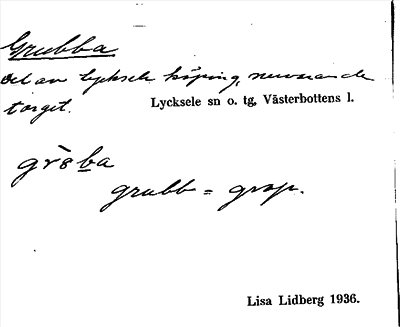 Grubba
del av Lycksele köping, nuvarande
torget.
Lycksele sn o. tg, Västerbottens l.
grùba
grubb = grop.
Lisa Lidberg 1936.